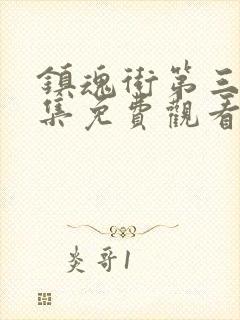 鎮魂街第三
集免費觀看
炎哥1